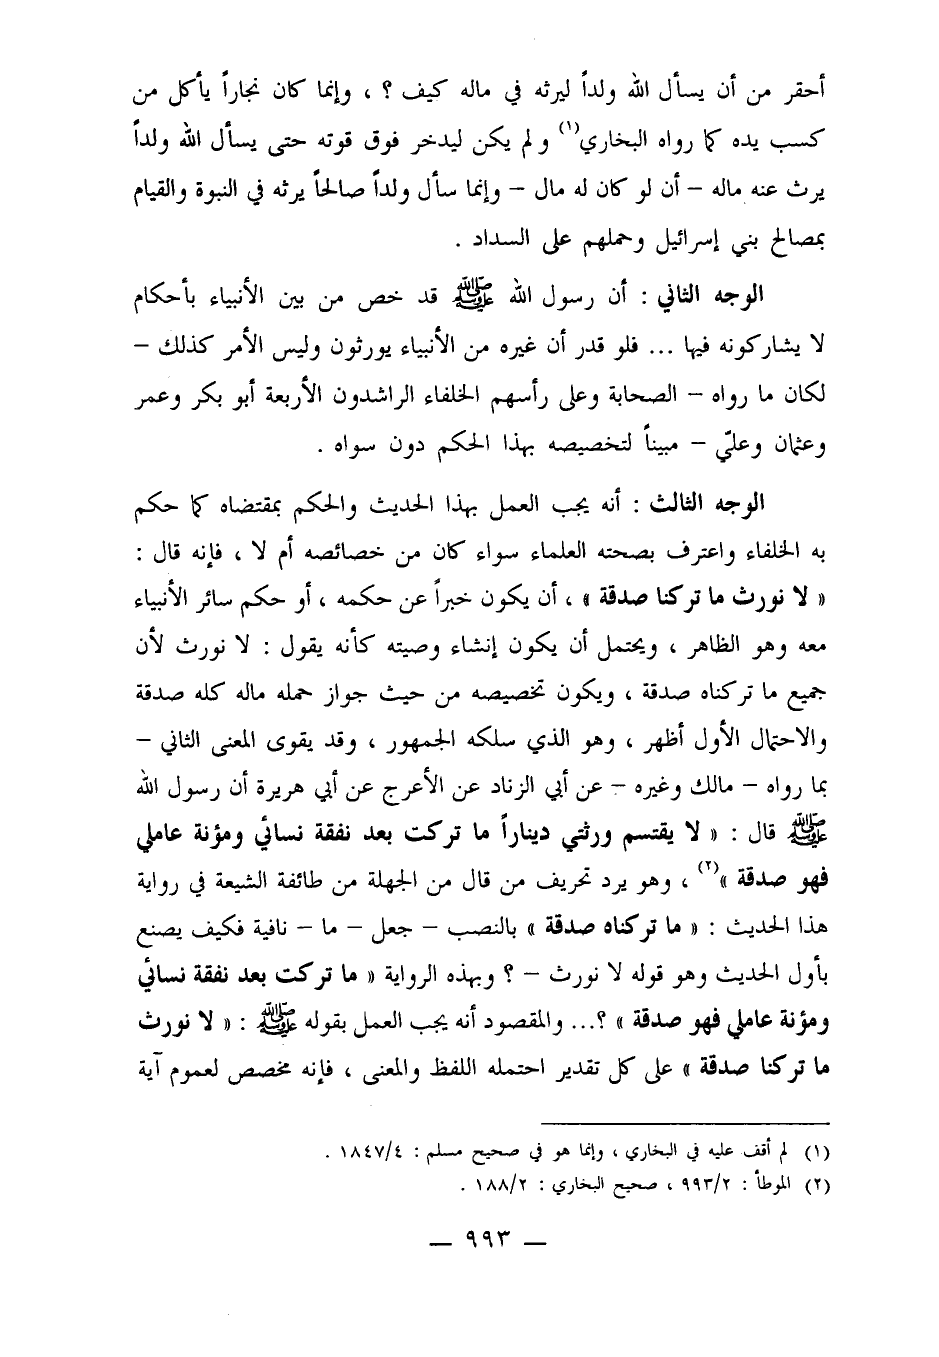 أحقر من أن يسأل الله ولداً ليرثه في ماله كيف ؟ ، وإنما كان نجاراً يأكل من
كسب يده كما رواه البخاري(١) و لم يكن ليدخر فوق قوته حتى يسأل الله ولداً
يرث عنه ماله – أن لو كان له مال – وإنما سأل ولداً صالحاً يرثه في النبوة والقيام
بمصالح بني إسرائيل وحملهم على السداد .
الوجه الثاني : أن رسول الله ﷺ قد خص من بين الأنبياء بأحكام
لا يشاركونه فيها ... فلو قدر أن غيره من الأنبياء يورثون وليس الأمر كذلك –
لكان ما رواه – الصحابة وعلى رأسهم الخلفاء الراشدون الأربعة أبو بكر وعمر
وعثمان وعليّ – مبيناً لتخصيصه بهذا الحكم دون سواه .
الوجه الثالث : أنه يجب العمل بهذا الحديث والحكم بمقتضاه كما حكم
به الخلفاء واعترف بصحته العلماء سواء كان من خصائصه أم لا ، فإنه قال :
« لا نورث ما تركنا صدقة » ، أن يكون خبراً عن حكمه ، أو حكم سائر الأنبياء
معه وهو الظاهر ، ويحتمل أن يكون إنشاء وصيته كأنه يقول : لا نورث لأن
جميع ما تركناه صدقة ، ويكون تخصيصه من حيث جواز حمله ماله كله صدقة
والاحتمال الأول أظهر ، وهو الذي سلكه الجمهور ، وقد يقوى المعنى الثاني –
بما رواه – مالك وغيره – عن أبي الزناد عن الأعرج عن أبي هريرة أن رسول الله
ﷺ قال : « لا يقتسم ورثتي ديناراً ما تركت بعد نفقة نسائي ومؤنة عاملي
فهو صدقة »(٢) ، وهو يرد تحريف من قال من الجهلة من طائفة الشيعة في رواية
هذا الحديث : « ما تركناه صدقة » بالنصب – جعل – ما – نافية فكيف يصنع
بأول الحديث وهو قوله لا نورث – ؟ وبهذه الرواية « ما تركت بعد نفقة نسائي
ومؤنة عاملي فهو صدقة » ؟... والمقصود أنه يجب العمل بقوله ﷺ : « لا نورث
ما تركنا صدقة » على كل تقدير احتمله اللفظ والمعنى ، فإنه مخصص لعموم آية
(١) لم أقف عليه في البخاري ، وإنما هو في صحيح مسلم : ١٨٤٧/٤ .
(٢) الموطأ : ٩٩٣/٢ ، صحيح البخاري : ١٨٨/٢ .
— ٩٩٣ —